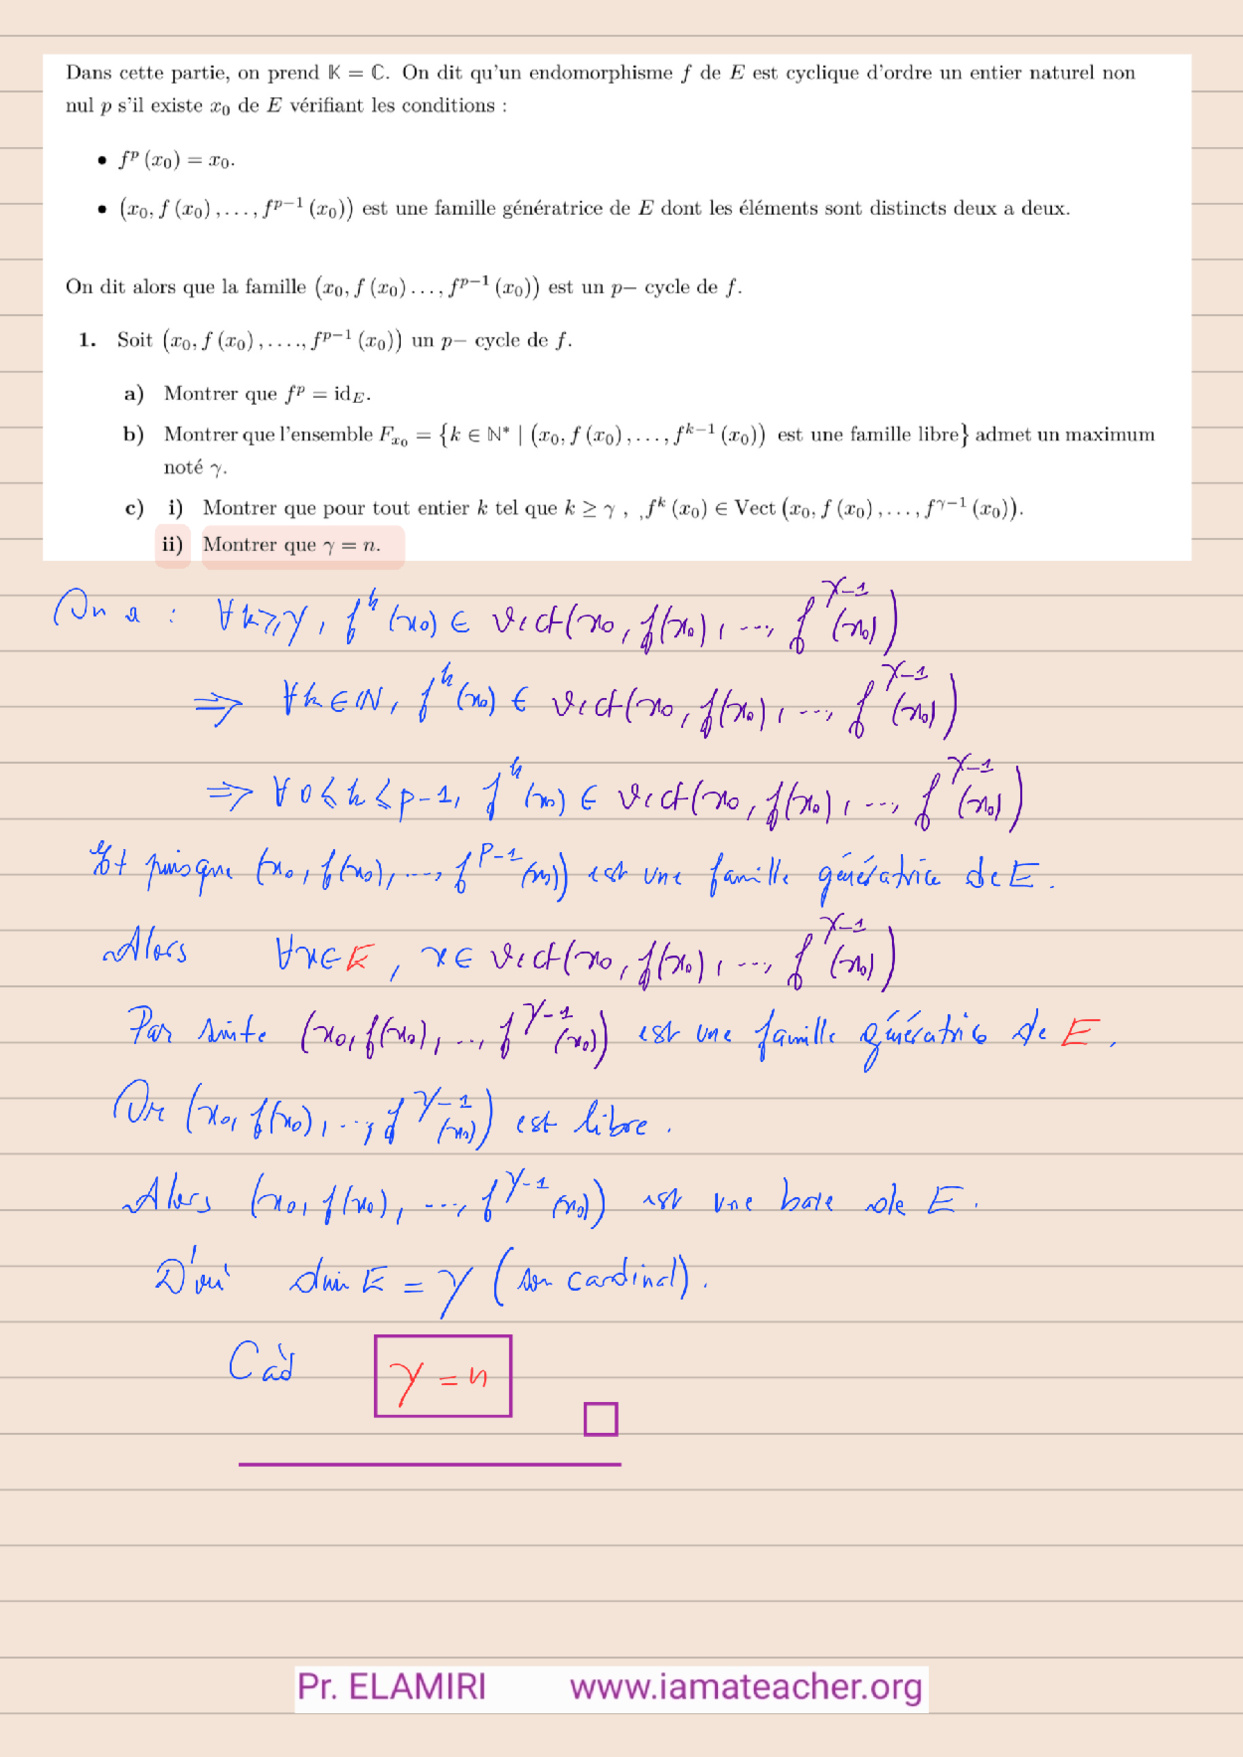 Dans cette partie, on prend 𝕂 = ℂ. On dit qu'un endomorphisme f de E est cyclique d'ordre un entier naturel non
nul p s'il existe x₀ de E vérifiant les conditions :
• fᵖ (x₀) = x₀.
• (x₀, f (x₀) , . . . , fᵖ⁻¹ (x₀)) est une famille génératrice de E dont les éléments sont distincts deux a deux.
On dit alors que la famille (x₀, f (x₀) . . . , fᵖ⁻¹ (x₀)) est un p− cycle de f.
1. Soit (x₀, f (x₀) , . . . ., fᵖ⁻¹ (x₀)) un p− cycle de f.
a) Montrer que fᵖ = id_E.
b) Montrer que l'ensemble F_{x₀} = {k ∈ ℕ* | (x₀, f (x₀) , . . . , fᵏ⁻¹ (x₀)) est une famille libre} admet un maximum
noté γ.
c) i) Montrer que pour tout entier k tel que k ≥ γ , ,fᵏ (x₀) ∈ Vect (x₀, f (x₀) , . . . , f^{γ−1} (x₀)).
ii) Montrer que γ = n.
On a : ∀k≥γ, fᵏ(x₀) ∈ Vect(x₀, f(x₀), ..., f^{γ-1}(x₀))
⇒ ∀k∈ℕ, fᵏ(x₀) ∈ Vect(x₀, f(x₀), ..., f^{γ-1}(x₀))
⇒ ∀ 0≤k≤p-1, fᵏ(x₀) ∈ Vect(x₀, f(x₀), ..., f^{γ-1}(x₀))
Et puisque (x₀, f(x₀), ..., f^{p-1}(x₀)) est une famille génératrice de E.
Alors ∀x∈E, x∈ Vect(x₀, f(x₀), ..., f^{γ-1}(x₀))
Par suite (x₀, f(x₀), ..., f^{γ-1}(x₀)) est une famille génératrice de E.
Or (x₀, f(x₀), ..., f^{γ-1}(x₀)) est libre.
Alors (x₀, f(x₀), ..., f^{γ-1}(x₀)) est une base de E.
D'où dim E = γ (son cardinal).
Càd γ = n
Pr. ELAMIRI www.iamateacher.org